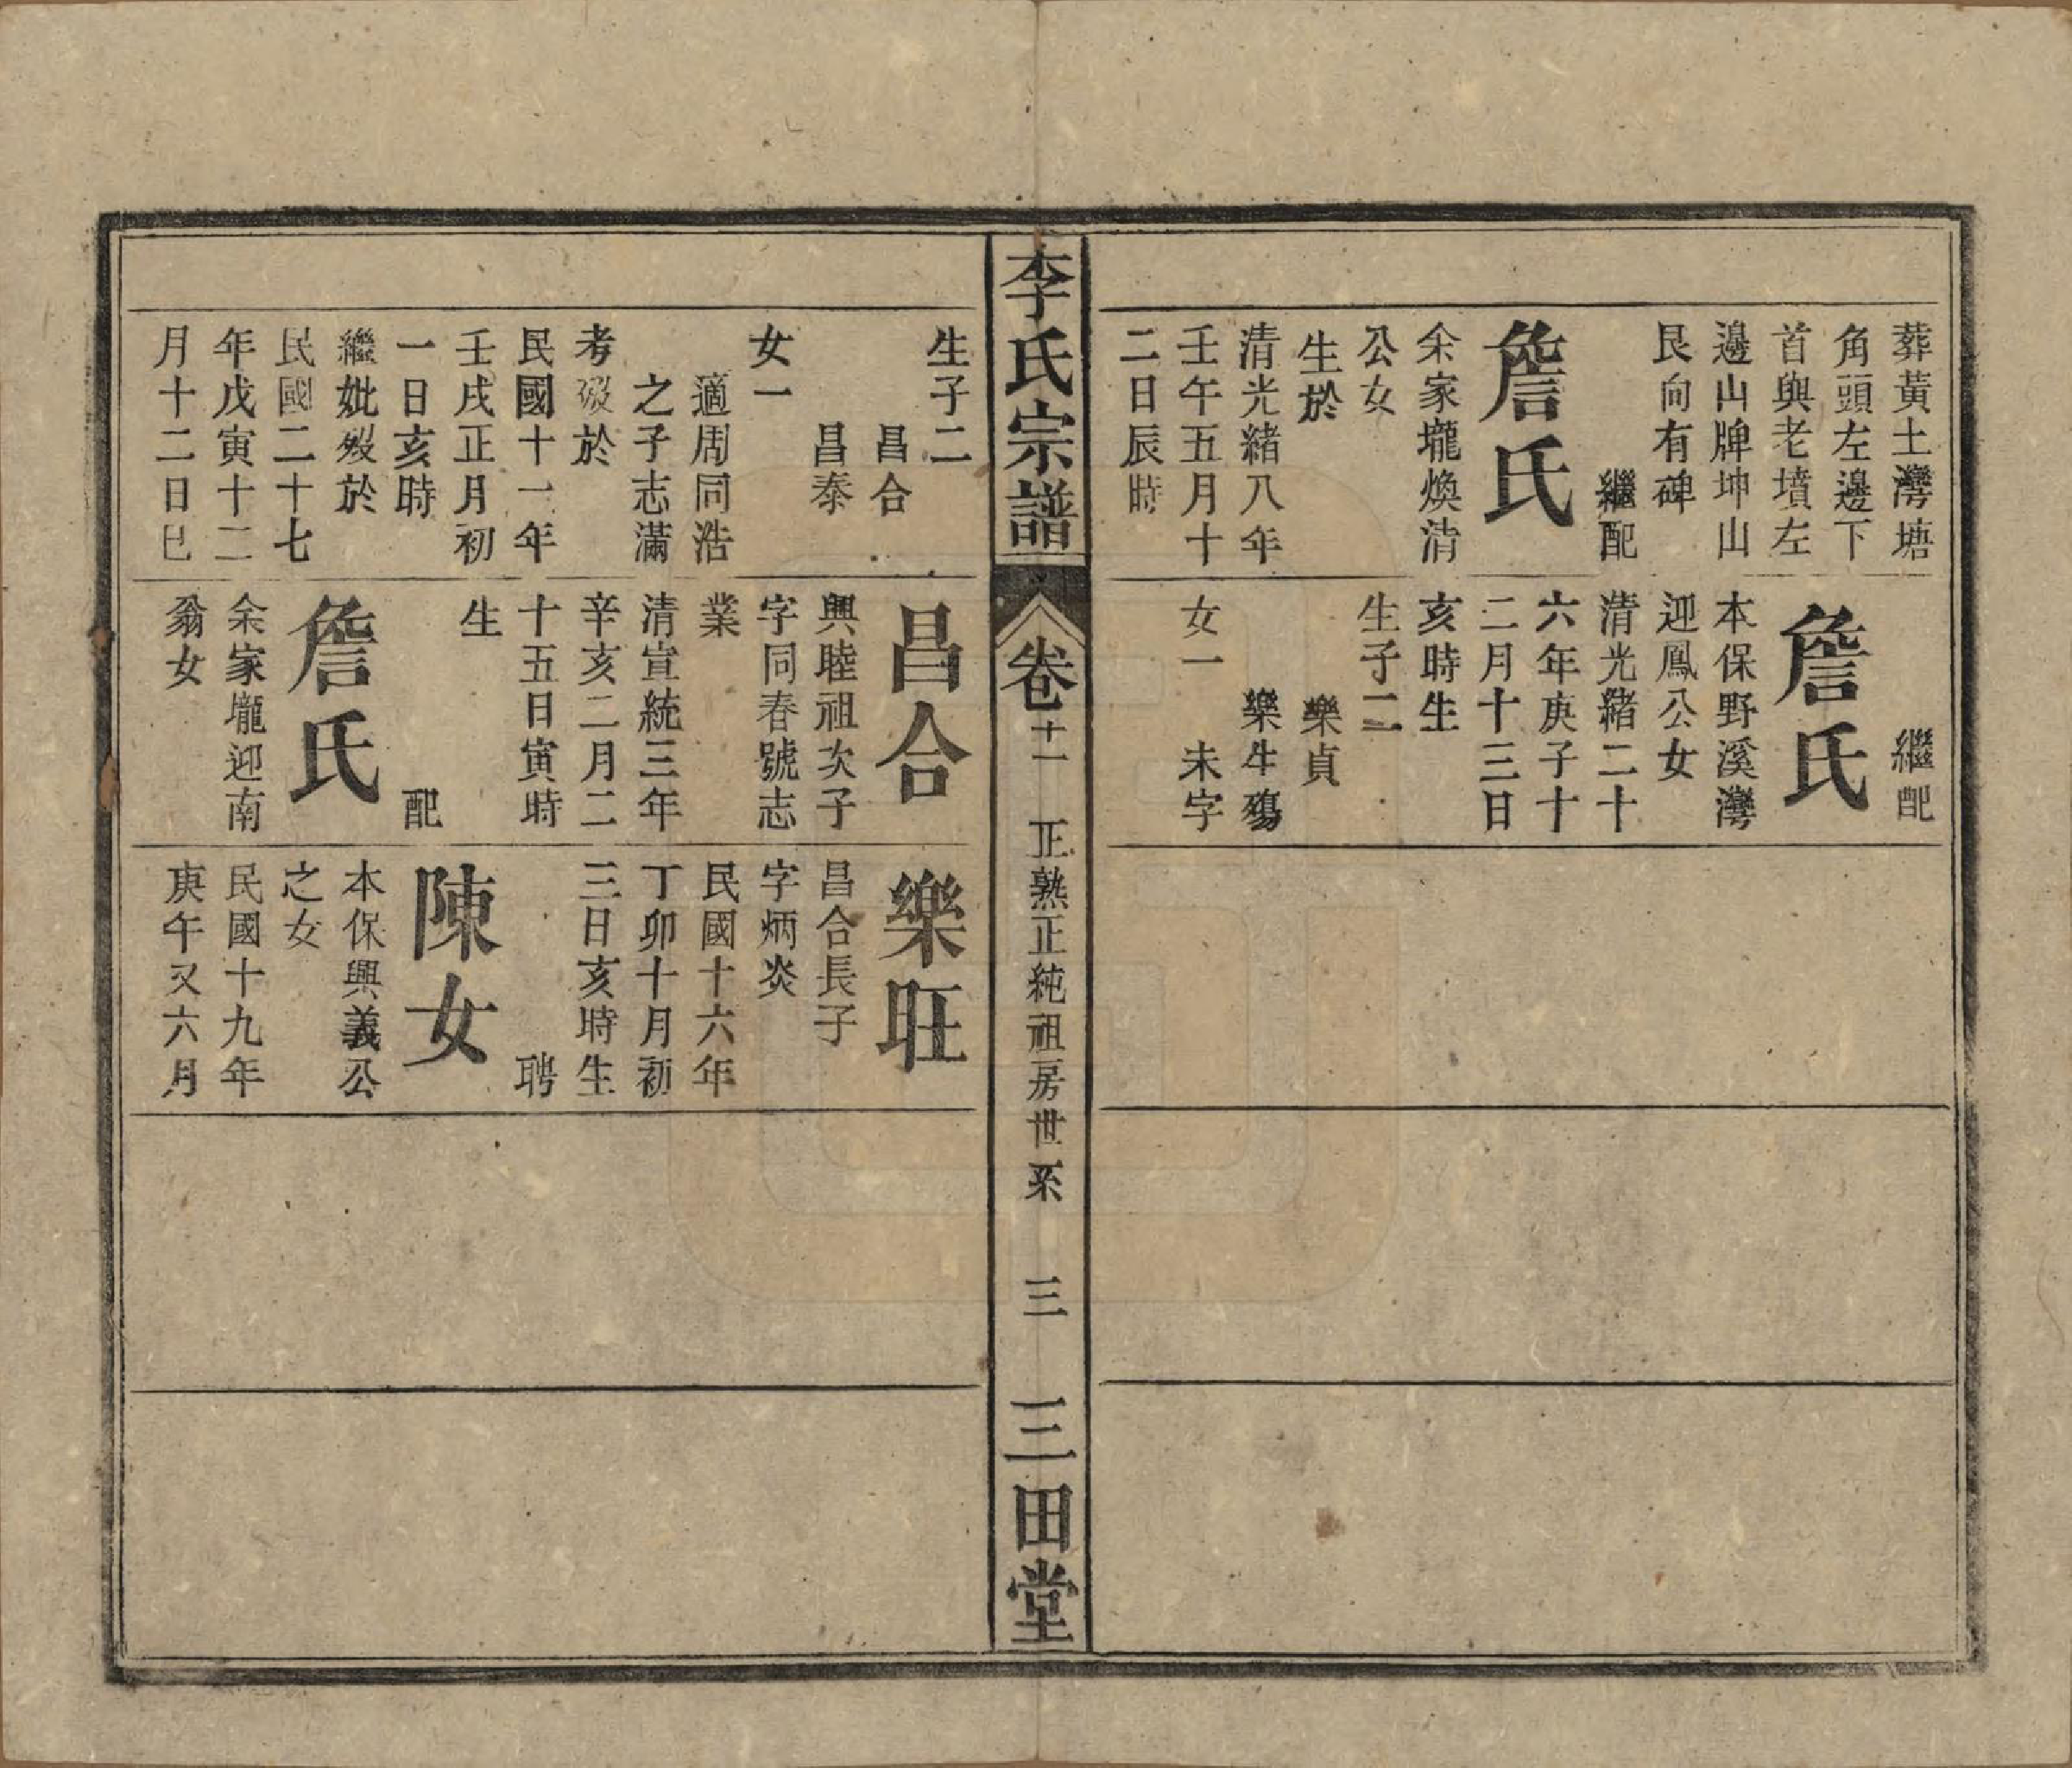 葬黃土灣塘
角頭左邊下
首與老墳左
邊山牌坤山
艮向有碑
繼配
詹氏
余家壠煥清
公女
生於
清光緒八年
壬午五月十
二日辰時
繼配
詹氏
本保野溪灣
迎鳳公女
清光緒二十
六年庚子十
二月十三日
亥時生
生子二
樂貞
樂牛殤
女一 未字
李氏宗譜
卷十一
正熟正純祖房世系
三
三田堂
生子二
昌合
昌泰
女一
適周同浩
之子志滿
考歿於
民國十一年
壬戌正月初
一日亥時
繼妣歿於
民國二十七
年戊寅十二
月十二日巳
昌合
興睦祖次子
字同春號志
業
清宣統三年
辛亥二月二
十五日寅時
生
配
詹氏
余家壠迎南
翁女
樂旺
昌合長子
字炳炎
民國十六年
丁卯十月初
三日亥時生
聘
陳女
本保興義公
之女
民國十九年
庚午又六月